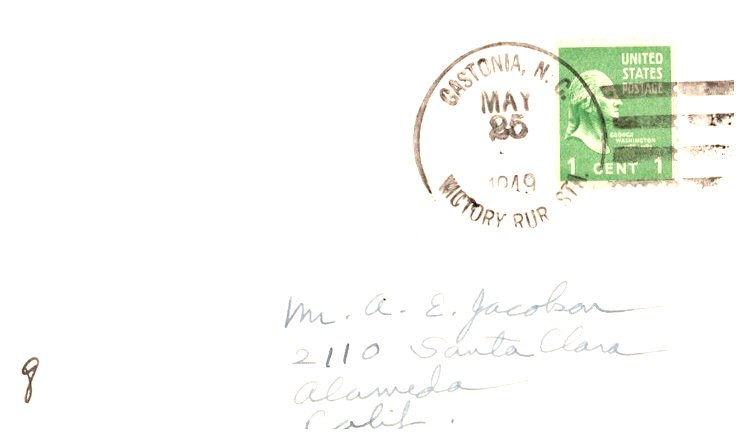 GASTONIA, N. C.
MAY
25
1949
VICTORY RUR. STA.
UNITED
STATES
POSTAGE
GEORGE
WASHINGTON
1 CENT 1
Mr. A. E. Jacobson
2110 Santa Clara
Alameda
Calif.
8